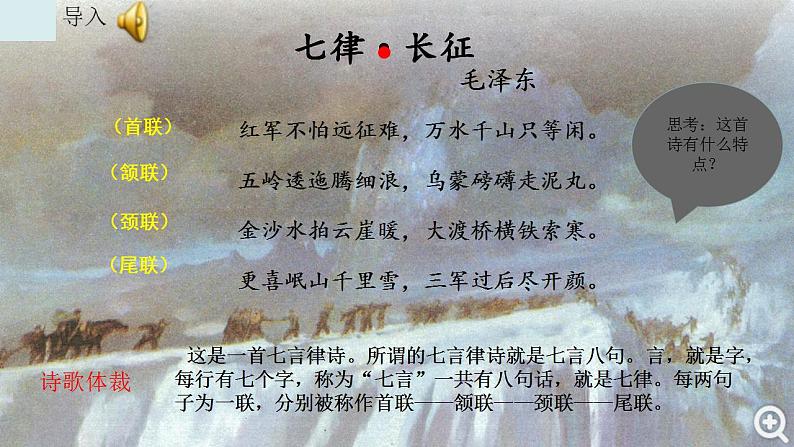 导入
七律•长征
毛泽东
（首联）
红军不怕远征难，万水千山只等闲。
（颔联）
五岭逶迤腾细浪，乌蒙磅礴走泥丸。
（颈联）
金沙水拍云崖暖，大渡桥横铁索寒。
（尾联）
更喜岷山千里雪，三军过后尽开颜。
思考：这首
诗有什么特
点？
诗歌体裁
这是一首七言律诗。所谓的七言律诗就是七言八句。言，就是字，
每行有七个字，称为“七言”一共有八句话，就是七律。每两句
子为一联，分别被称作首联——颔联——颈联——尾联。